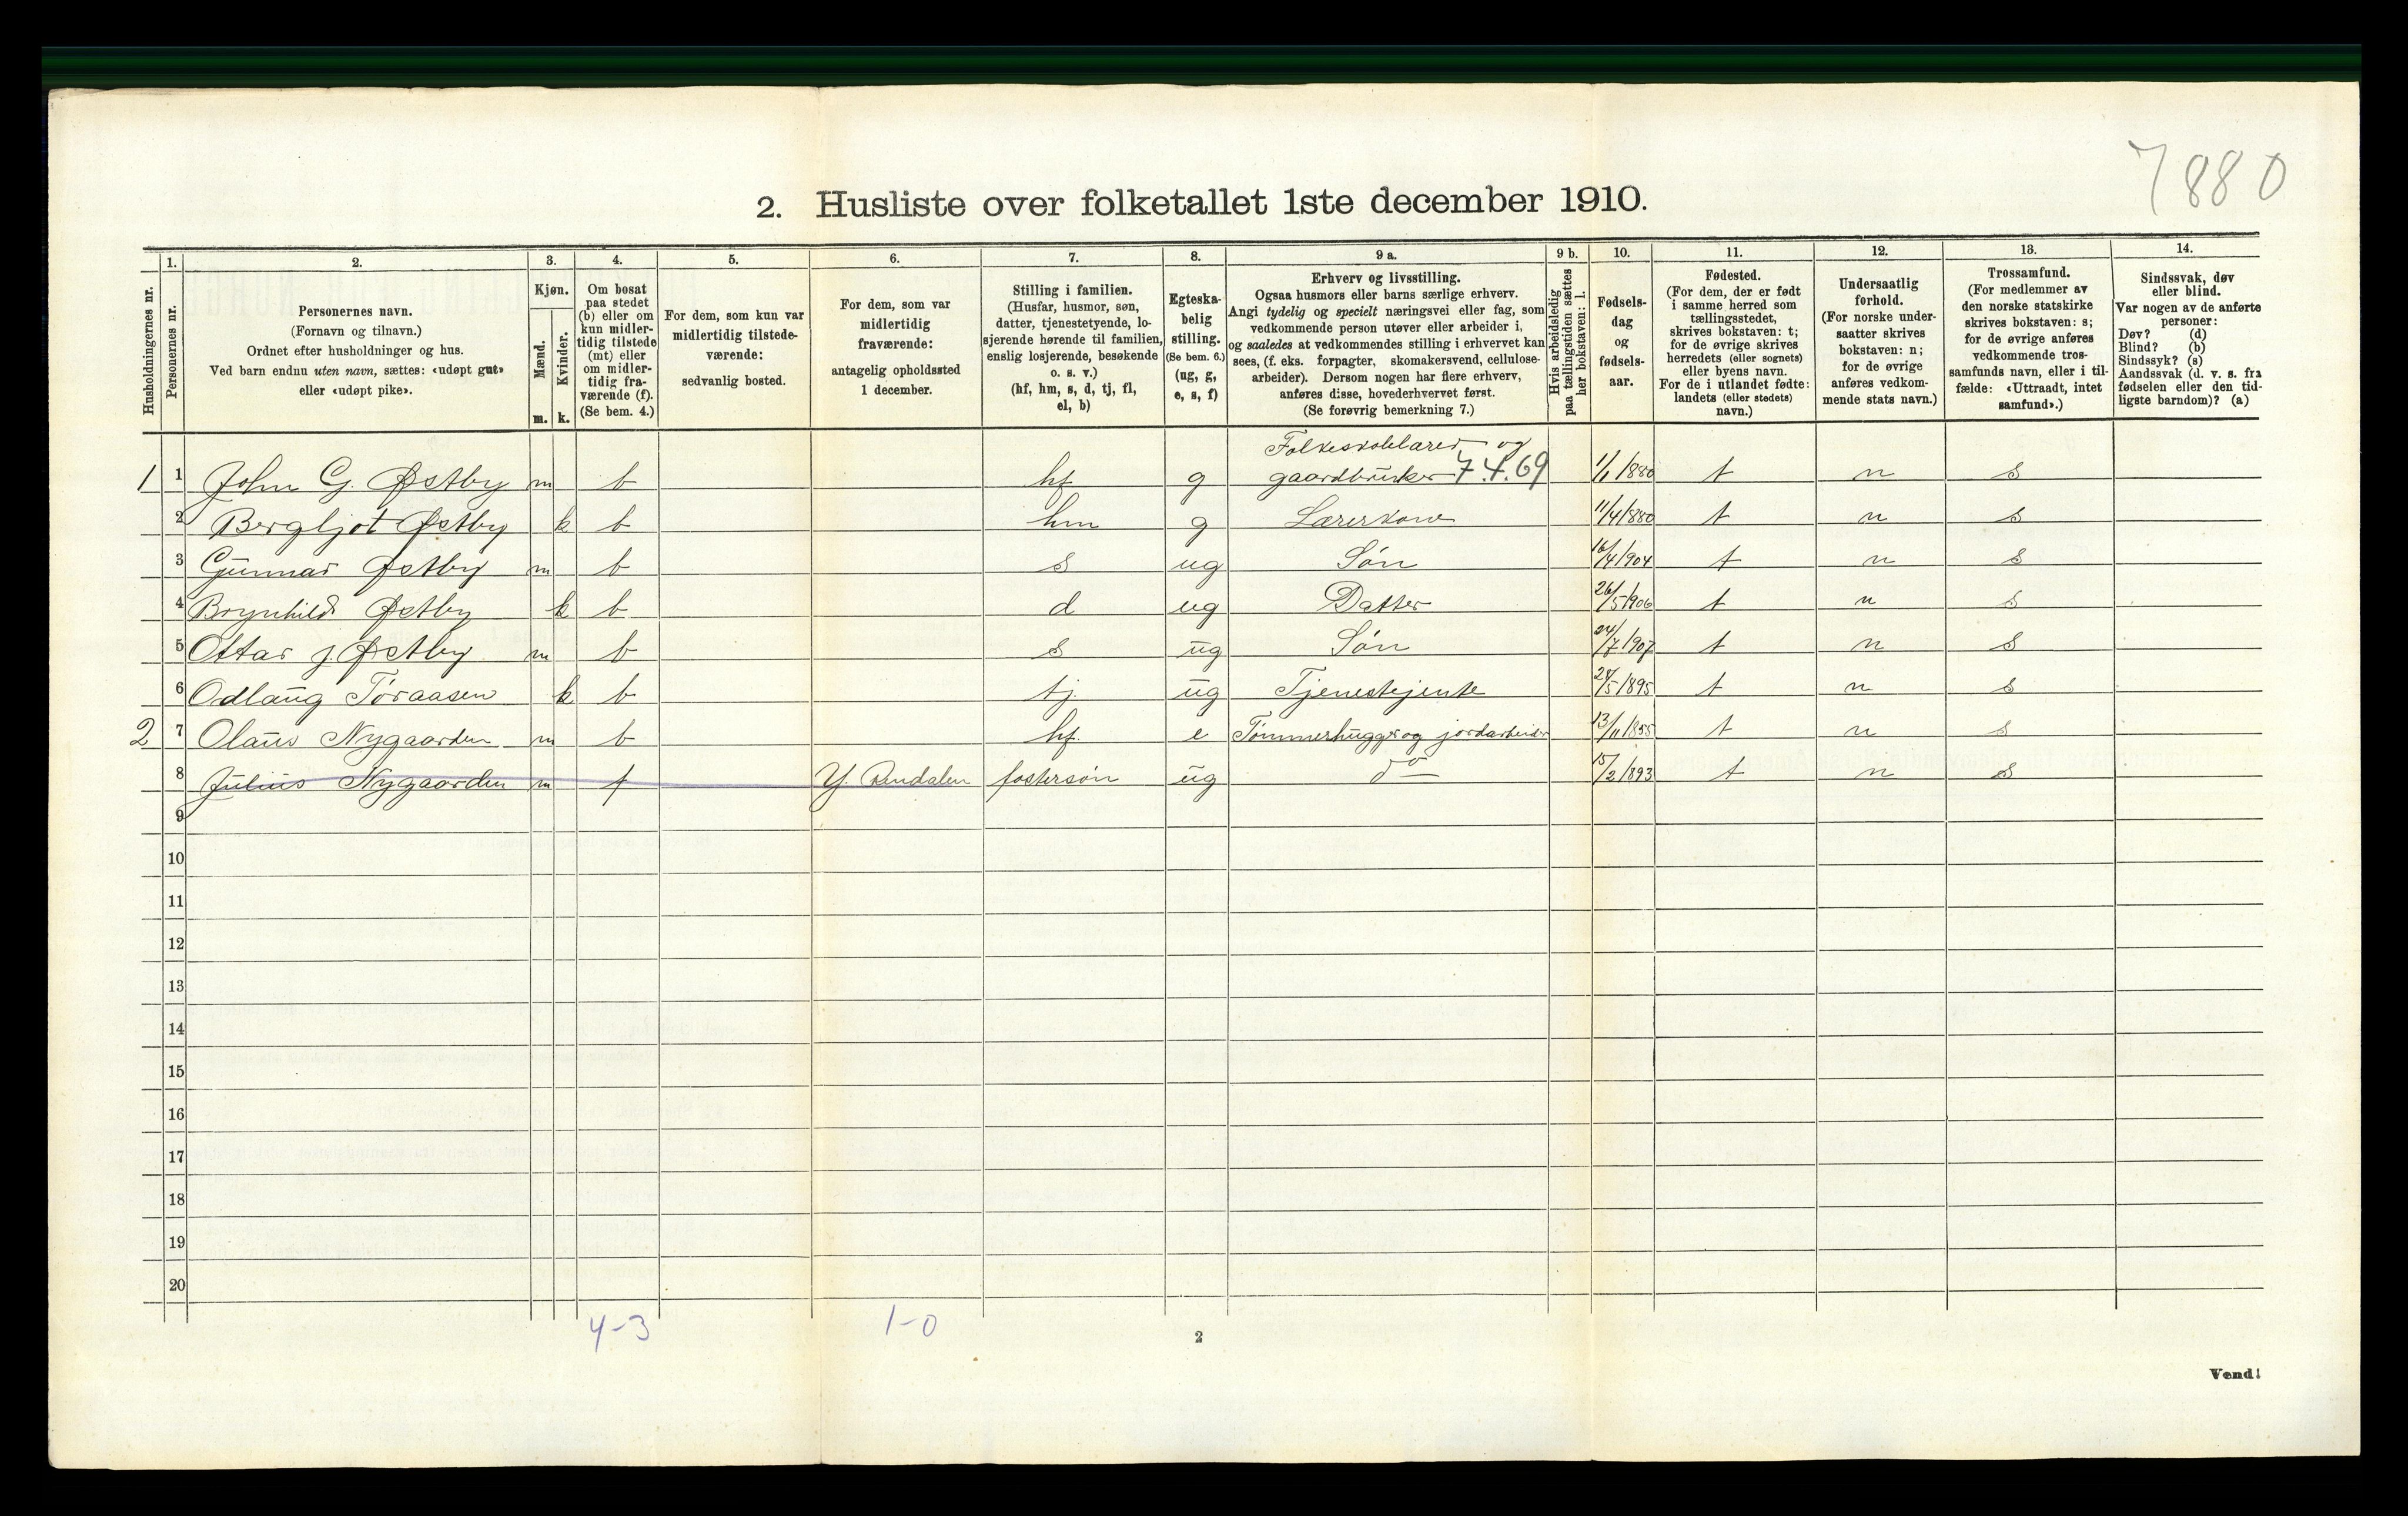 7880
2. Husliste over folketallet 1ste december 1910.
Husholdningernes nr.
1.
Personernes nr.
2.
Personernes navn.
(Fornavn og tilnavn.)
Ordnet efter husholdninger og hus.
Ved barn endnu uten navn, sættes: «udøpt gut»
eller «udøpt pike».
3.
Kjøn.
Mænd. Kvinder.
m. k.
4.
Om bosat
paa stedet
(b) eller om
kun midler-
tidig tilstede
(mt) eller
om midler-
tidig fra-
værende (f).
(Se bem. 4.)
5.
For dem, som kun var
midlertidig tilstede-
værende:
sedvanlig bosted.
6.
For dem, som var
midlertidig
fraværende:
antagelig opholdssted
1 december.
7.
Stilling i familien.
(Husfar, husmor, søn,
datter, tjenestetyende, lo-
sjerende hørende til familien,
enslig losjerende, besøkende
o. s. v.)
(hf, hm, s, d, tj, fl,
el, b)
8.
Egteska-
belig
stilling.
(Se bem. 6.)
(ug, g,
e, s, f)
9 a.
Erhverv og livsstilling.
Ogsaa husmors eller barns særlige erhverv.
Angi tydelig og specielt næringsvei eller fag, som
vedkommende person utøver eller arbeider i,
og saaledes at vedkommendes stilling i erhvervet kan
sees, (f. eks. forpagter, skomakersvend, cellulose-
arbeider). Dersom nogen har flere erhverv,
anføres disse, hovederhvervet først.
(Se forøvrig bemerkning 7.)
9 b.
Hvis arbeidsledig
paa tællingstiden sættes
her bokstaven: l.
10.
Fødsels-
dag
og
fødsels-
aar.
11.
Fødested.
(For dem, der er født
i samme herred som
tællingsstedet,
skrives bokstaven: t;
for de øvrige skrives
herredets (eller sognets)
eller byens navn.
For de i utlandet fødte:
landets (eller stedets)
navn.)
12.
Undersaatlig
forhold.
(For norske under-
saatter skrives
bokstaven: n;
for de øvrige
anføres vedkom-
mende stats navn.)
13.
Trossamfund.
(For medlemmer av
den norske statskirke
skrives bokstaven: s;
for de øvrige anføres
vedkommende tros-
samfunds navn, eller i til-
fælde: «Uttraadt, intet
samfund».)
14.
Sindssvak, døv
eller blind.
Var nogen av de anførte
personer:
Døv? (d)
Blind? (b)
Sindssyk? (s)
Aandssvak (d. v. s. fra
fødselen eller den tid-
ligste barndom)? (a)
Folkeskolelærer og
1 1 John G. Østby m b hf g gaardbruker 7.4.69 1/1 1880 t n s
2 Bergljot Østby k b hm g Lærerkone 11/4 1880 t n s
3 Gunnar Østby m b s ug Søn 16/4 1904 t n s
4 Brynhild Østby k b d ug Datter 26/5 1906 t n s
5 Ottar J. Østby m b s ug Søn 24/7 1907 t n s
6 Odlaug Toraasen k b tj. ug Tjenestejente 24/5 1895 t n s
2 7 Olaus Nygaarden m b hf. e Tømmerhugger og jordarbeider 13/11 1855 t n s
8 Julius Nygaarden m f Y. Rendalen fostersøn ug do 15/2 1893 t n s
9
10
11
12
13
14
15
16
17
18
19
20
4-3 1-0
2
Vend!